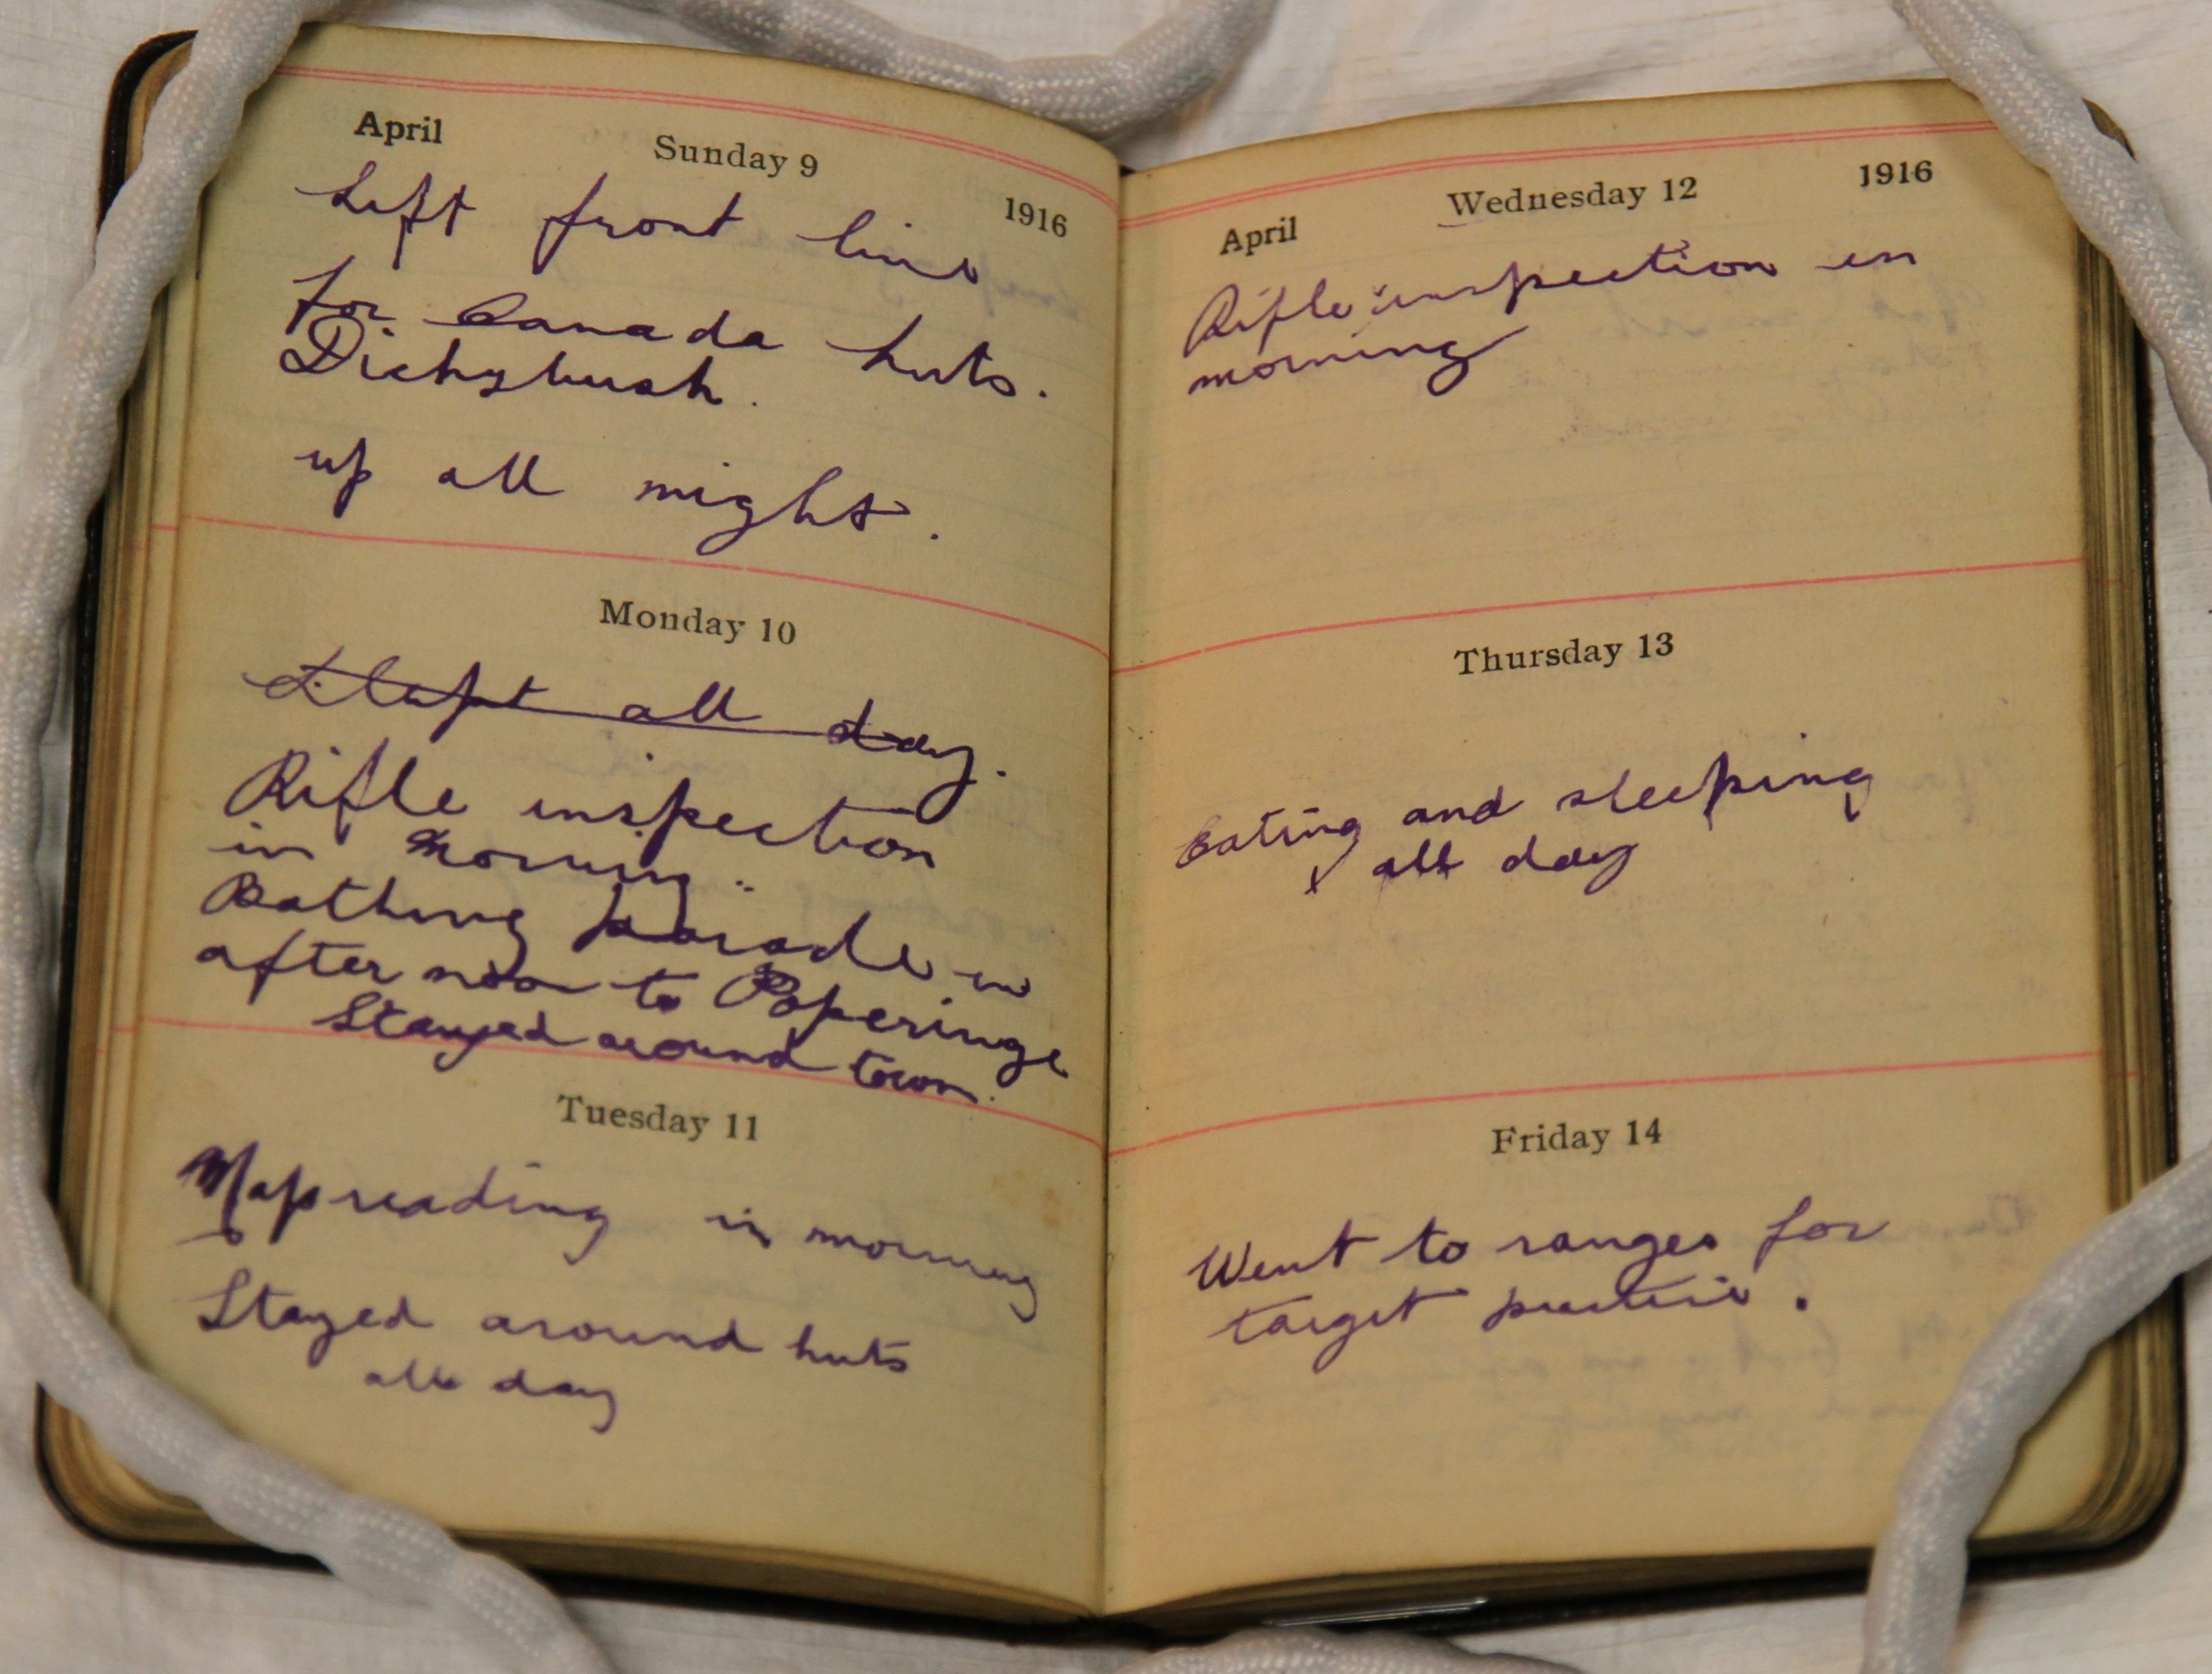 April Sunday 9 1916
Left front line
for Canada huts.
Dickybush.
up all night.
Monday 10
Slept all day.
Rifle inspection
in morning.
Bathing parade in
after noon to Poperinge
Stayed around town.
Tuesday 11
Map reading in morning
Stayed around huts
all day
April Wednesday 12 1916
Rifle inspection in
morning
Thursday 13
Eating and sleeping
all day
Friday 14
Went to ranges for
target practice.